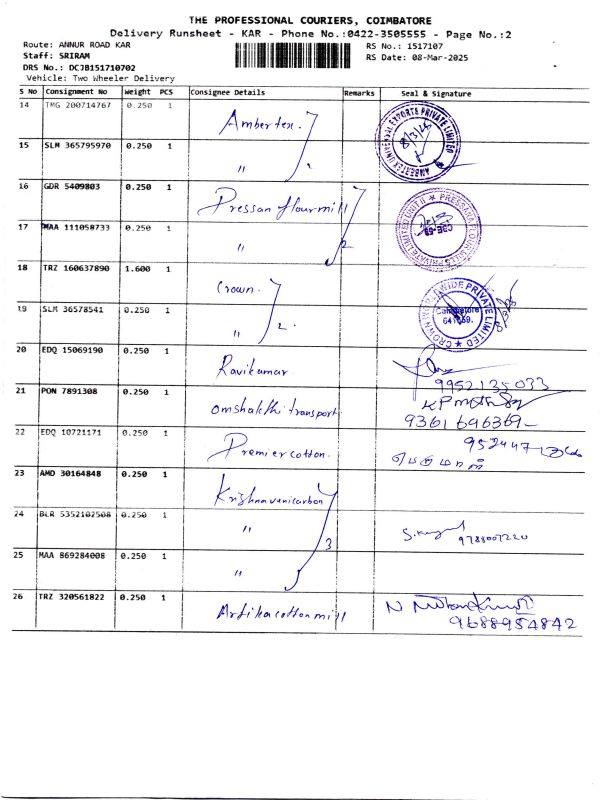 THE PROFESSIONAL COURIERS, COIMBATORE
Delivery Runsheet - KAR - Phone No.:0422-3505555 - Page No.:2
Route: ANNUR ROAD KAR
Staff: SRIRAM
DRS No.: DCJB151710702
Vehicle: Two Wheeler Delivery
RS No.: 1517107
RS Date: 08-Mar-2025
S No Consignment No Weight PCS Consignee Details Remarks Seal & Signature
14 TMG 200714767 0.250 1 Ambertex
8/3/25
AMBERTEX UNIVERSAL EXPORTS PRIVATE LIMITED
15 SLM 365795970 0.250 1 "
16 GDR 5409803 0.250 1 Pressan flourmill
PRESSANA FLOUR MILLS PRIVATE LIMITED UNIT II
CBE-59
17 MAA 111058733 0.250 1 " 2
18 TRZ 160637890 1.600 1 Crown.
CROWN WORLDWIDE PRIVATE LIMITED
Coimbatore
641659.
19 SLM 36578541 0.250 1 " 2.
20 EDQ 15069190 0.250 1 Ravikumar
9952135033
21 PON 7891308 0.250 1 omshakthi transport
9361696369-
22 EDQ 10721171 0.250 1 Premier cotton.
பெருமாள்
23 AMD 30164848 0.250 1 Krishnavanicarbon
24 BLR 5352102508 0.250 1 " 3
9788007220
25 MAA 869284008 0.250 1 "
26 TRZ 320561822 0.250 1 Artikacottonmill
9688954842